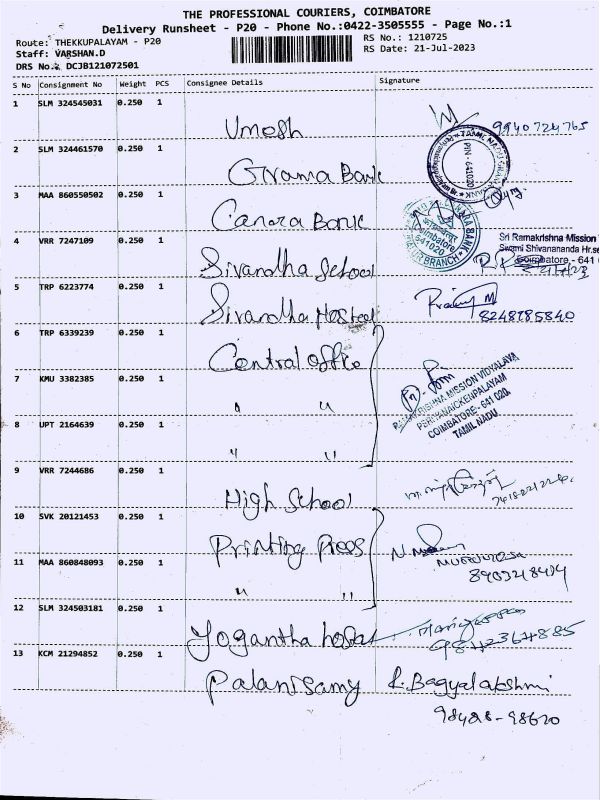 THE PROFESSIONAL COURIERS, COIMBATORE
Delivery Runsheet - P20 - Phone No.:0422-3505555 - Page No.:1
Route: THEKKUPALAYAM - P20
Staff: VARSHAN.D
DRS No.: DCJB121072501
RS No.: 1210725
RS Date: 21-Jul-2023
S No Consignment No Weight PCS Consignee Details Signature
1 SLM 324545031 0.250 1 Umesh 9940724765
2 SLM 324461570 0.250 1 Grama Bank
TAMIL NADU
PIN - 641020
3 MAA 860550502 0.250 1 Canara Bank
CANARA BANK
Coimbatore
641020
BRANCH
4 VRR 7247109 0.250 1 Sivandha School
Sri Ramakrishna Mission
Swami Shivananda Hr.se
Coimbatore - 641
5 TRP 6223774 0.250 1 Sivandha Hostel
8248785840
6 TRP 6339239 0.250 1 Central office
7 KMU 3382385 0.250 1 " "
RAMAKRISHNA MISSION VIDYALAYA
PERIYANAICKENPALAYAM
COIMBATORE - 641 020.
TAMIL NADU
8 UPT 2164639 0.250 1 " "
9 VRR 7244686 0.250 1 High School
10 SVK 20121453 0.250 1 Printing Press
11 MAA 860848093 0.250 1 " "
12 SLM 324503181 0.250 1 Yogantha hostel
9842364885
13 KCM 21294852 0.250 1 Palanisamy R. Bagyalakshmi
98428-98620